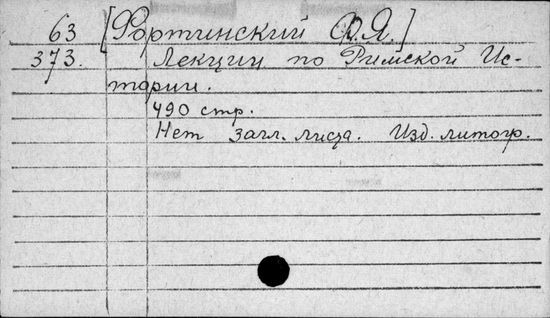 63 [Фортинский Ф.Я.]
373. Лекции по Римской Ис-
тории.
490 стр.
Нет загл. листа. Изд. литогр.